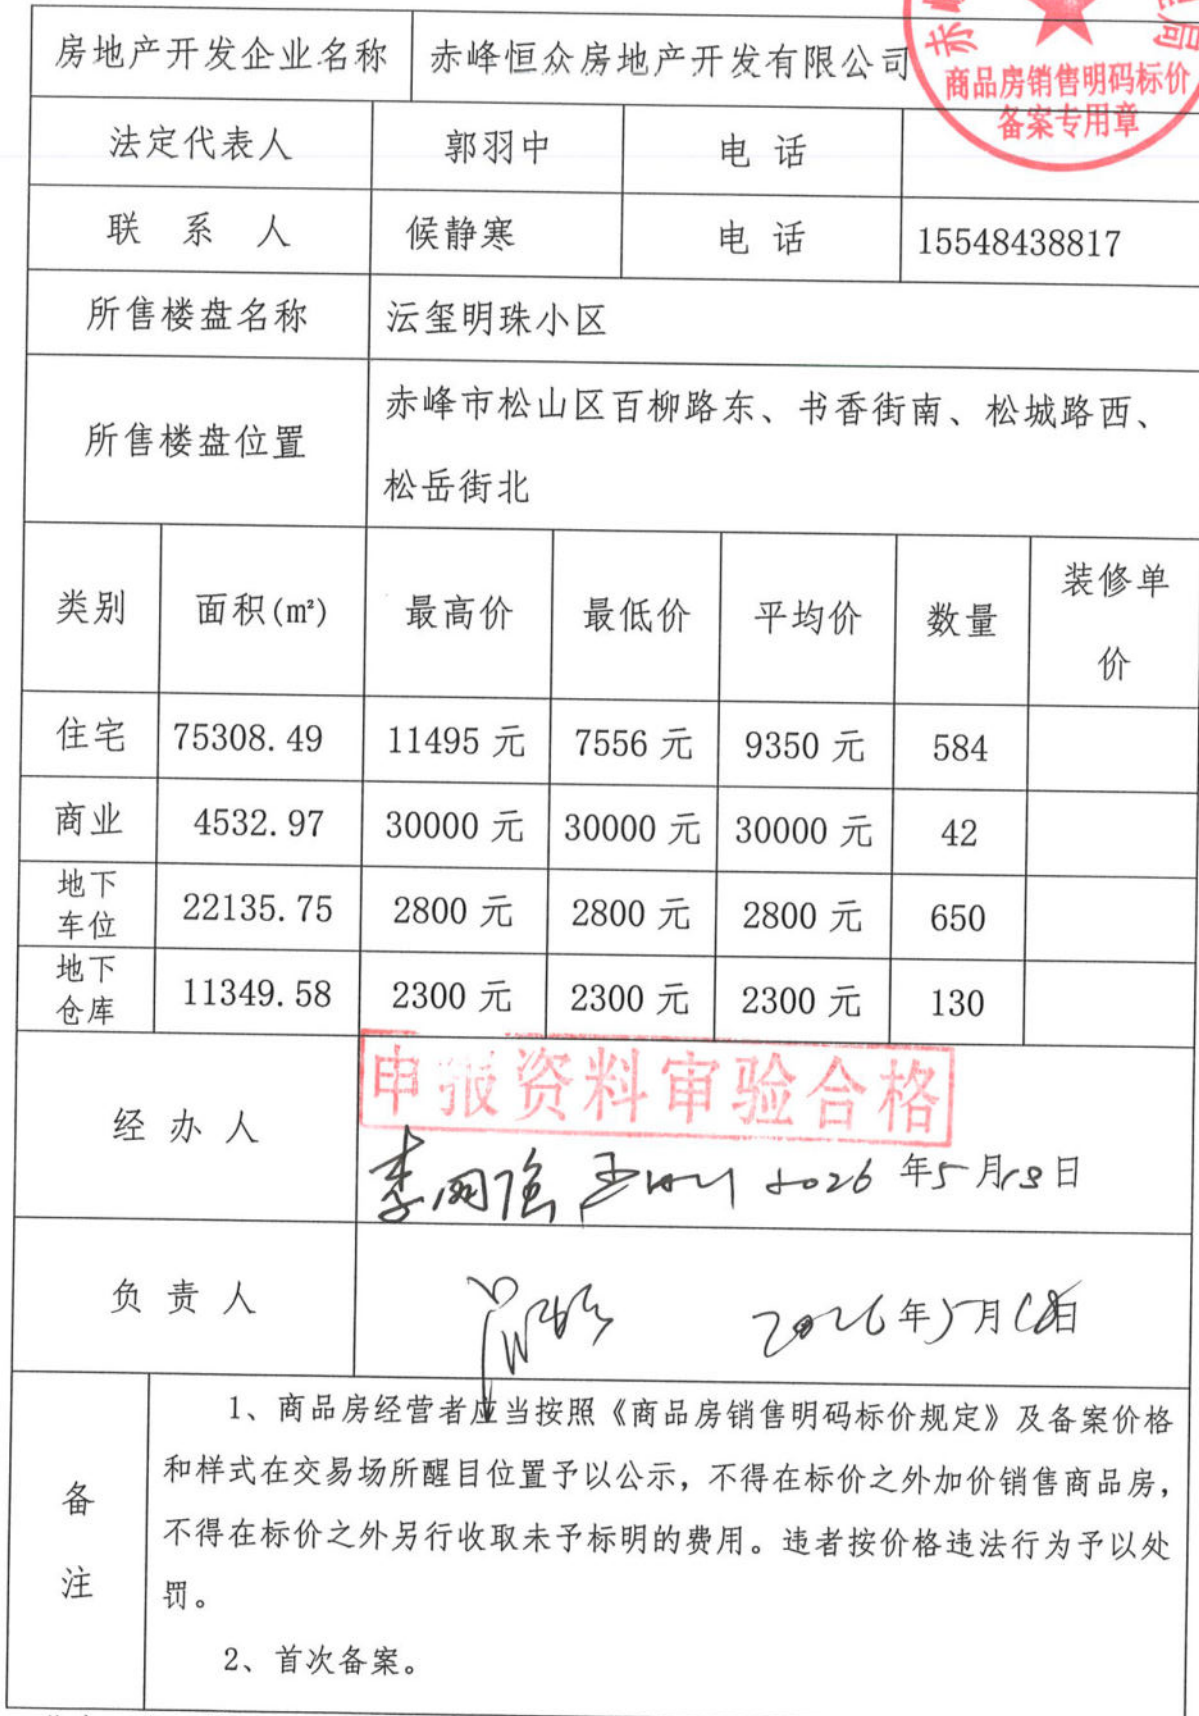 赤 局
房地产开发企业名称 赤峰恒众房地产开发有限公司
商品房销售明码标价
备案专用章
法定代表人 郭羽中 电 话
联 系 人 候静寒 电 话 15548438817
所售楼盘名称 沄玺明珠小区
所售楼盘位置 赤峰市松山区百柳路东、书香街南、松城路西、
松岳街北
类别 面积(㎡) 最高价 最低价 平均价 数量 装修单
价
住宅 75308.49 11495 元 7556 元 9350 元 584
商业 4532.97 30000 元 30000 元 30000 元 42
地下
车位 22135.75 2800 元 2800 元 2800 元 650
地下
仓库 11349.58 2300 元 2300 元 2300 元 130
申报资料审验合格
经 办 人 2026 年5月18日
负 责 人 2026年5月18日
备
注
1、商品房经营者应当按照《商品房销售明码标价规定》及备案价格
和样式在交易场所醒目位置予以公示，不得在标价之外加价销售商品房，
不得在标价之外另行收取未予标明的费用。违者按价格违法行为予以处
罚。
2、首次备案。